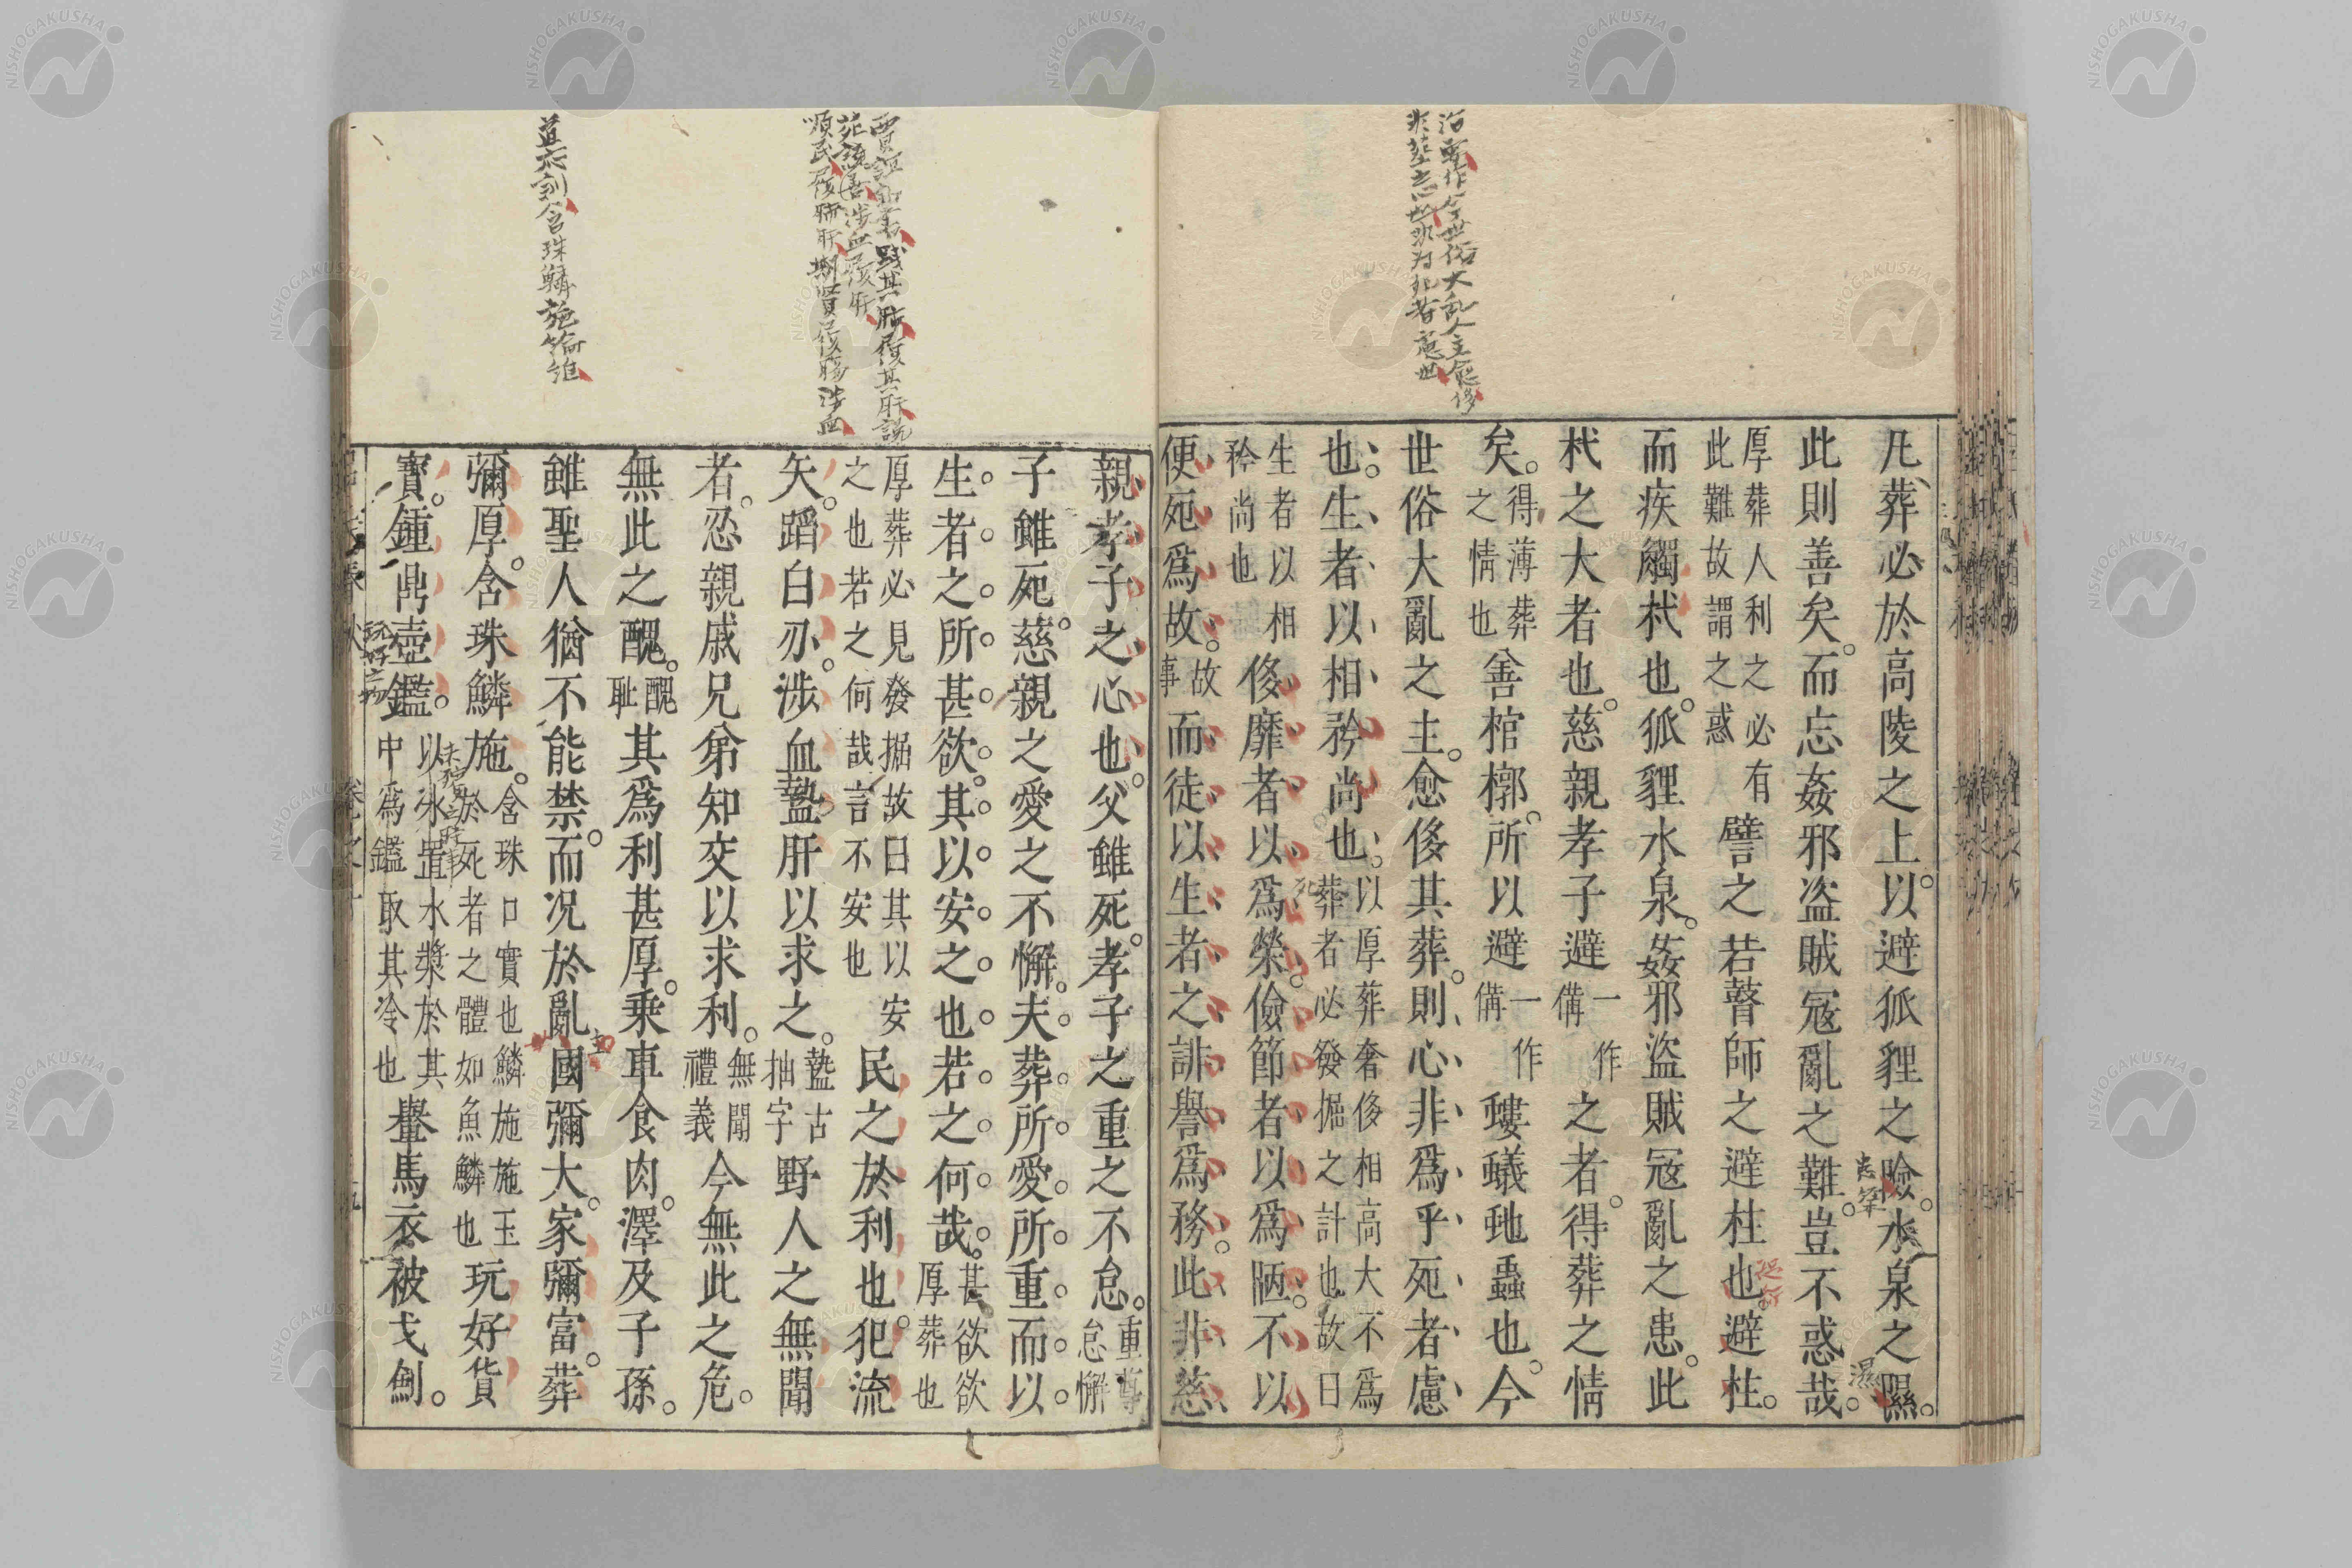 凡葬必於高陵之上。以避狐狸之險。水泉之隰。
此則善矣。而忘姦邪盜賊寇亂之難。豈不惑哉。
厚葬人利之必有
此難故謂之惑
譬之若瞽師之避柱也避柱。
而疾觸杙也。狐狸水泉。姦邪盜賊寇亂之患。此
杙之大者也。慈親孝子避
一作
備
之者。得葬之情
矣。
得薄葬
之情也
善棺椁。所以避
一作
備
螻蟻虵蟲也。今
世俗大亂之主。愈侈其葬。則心非爲乎死者慮
也。生者以相矜尚也。
以厚葬奢侈相高大不爲
葬者必發掘之計也故曰
生者以相
矜尚也
侈靡者以爲榮。儉節者以爲陋。不以
便死爲故。
故
事
而徒以生者之誹譽爲務。此非慈
親孝子之心也。父雖死。孝子之重之不怠。
重尊
怠懈
子雖死。慈親之愛之不懈。夫葬所愛所重。而以
生者之所甚欲。其以安之也。若之何哉。
甚欲欲
厚葬也
厚葬必見發掘故曰其以安
之也若之何哉言不安也
民之於利也。犯流
矢。蹈白刃。涉血盩肝以求之。
盩古
抽字
野人之無聞
者。忍親戚兄弟知交以求利。
無聞
禮義
今無此之危。
無此之醜。
醜
耻
其爲利甚厚。乗車食肉。澤及子孫。
雖聖人猶不能禁。而況於亂國彌大。家彌富。葬
彌厚。含珠鱗施。
含珠口實也鱗施施玉
於死者之體如魚鱗也
玩好貨
寶。鍾鼎壺鑑。
以冰置水漿於其
中爲鑑取其冷也
轝馬衣被戈劍。
NISHOGAKUSHA